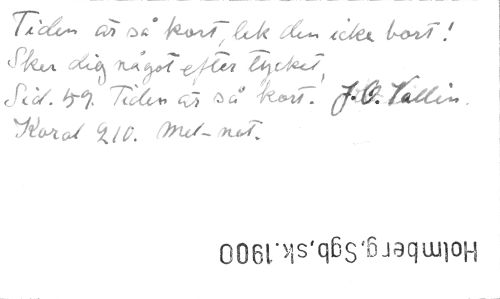 Tiden är så kort, lek den icke bort!
Sker dig något efter tycket,
Sid. 59. Tiden är så kort. J.O. Wallin.
Koral 210. Mel-not.
Holmberg,Sgb,sk.1900